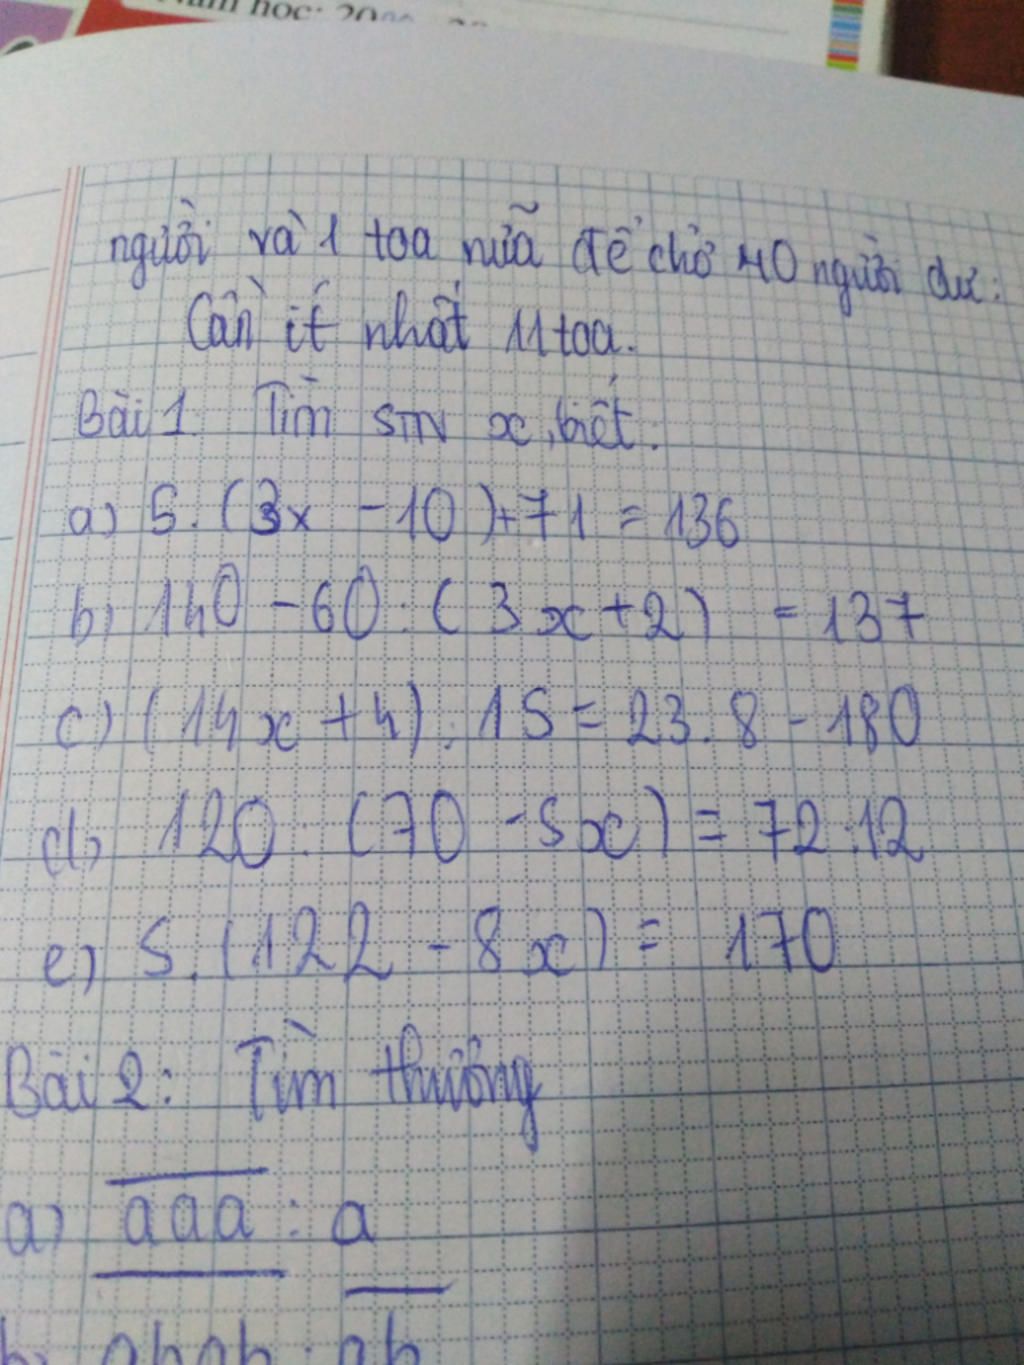 năm học: 20
người và 1 toa nữa để chở 40 người dư.
Cần ít nhất 11 toa.
Bài 1. Tìm STN x, biết:
a) 5. (3x - 10) + 71 = 136
b) 140 - 60 : ( 3x + 2) = 137
c) (14x + 4) : 15 = 23. 8 - 180
d) 120 : (70 - 5x) = 72 : 12
e) 5. (122 - 8x) = 170
Bài 2: Tìm thương
a) aaa : a
b) abab : ab